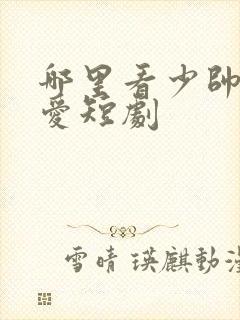 哪里看少帥
愛短劇
雪晴瑛麒動漫